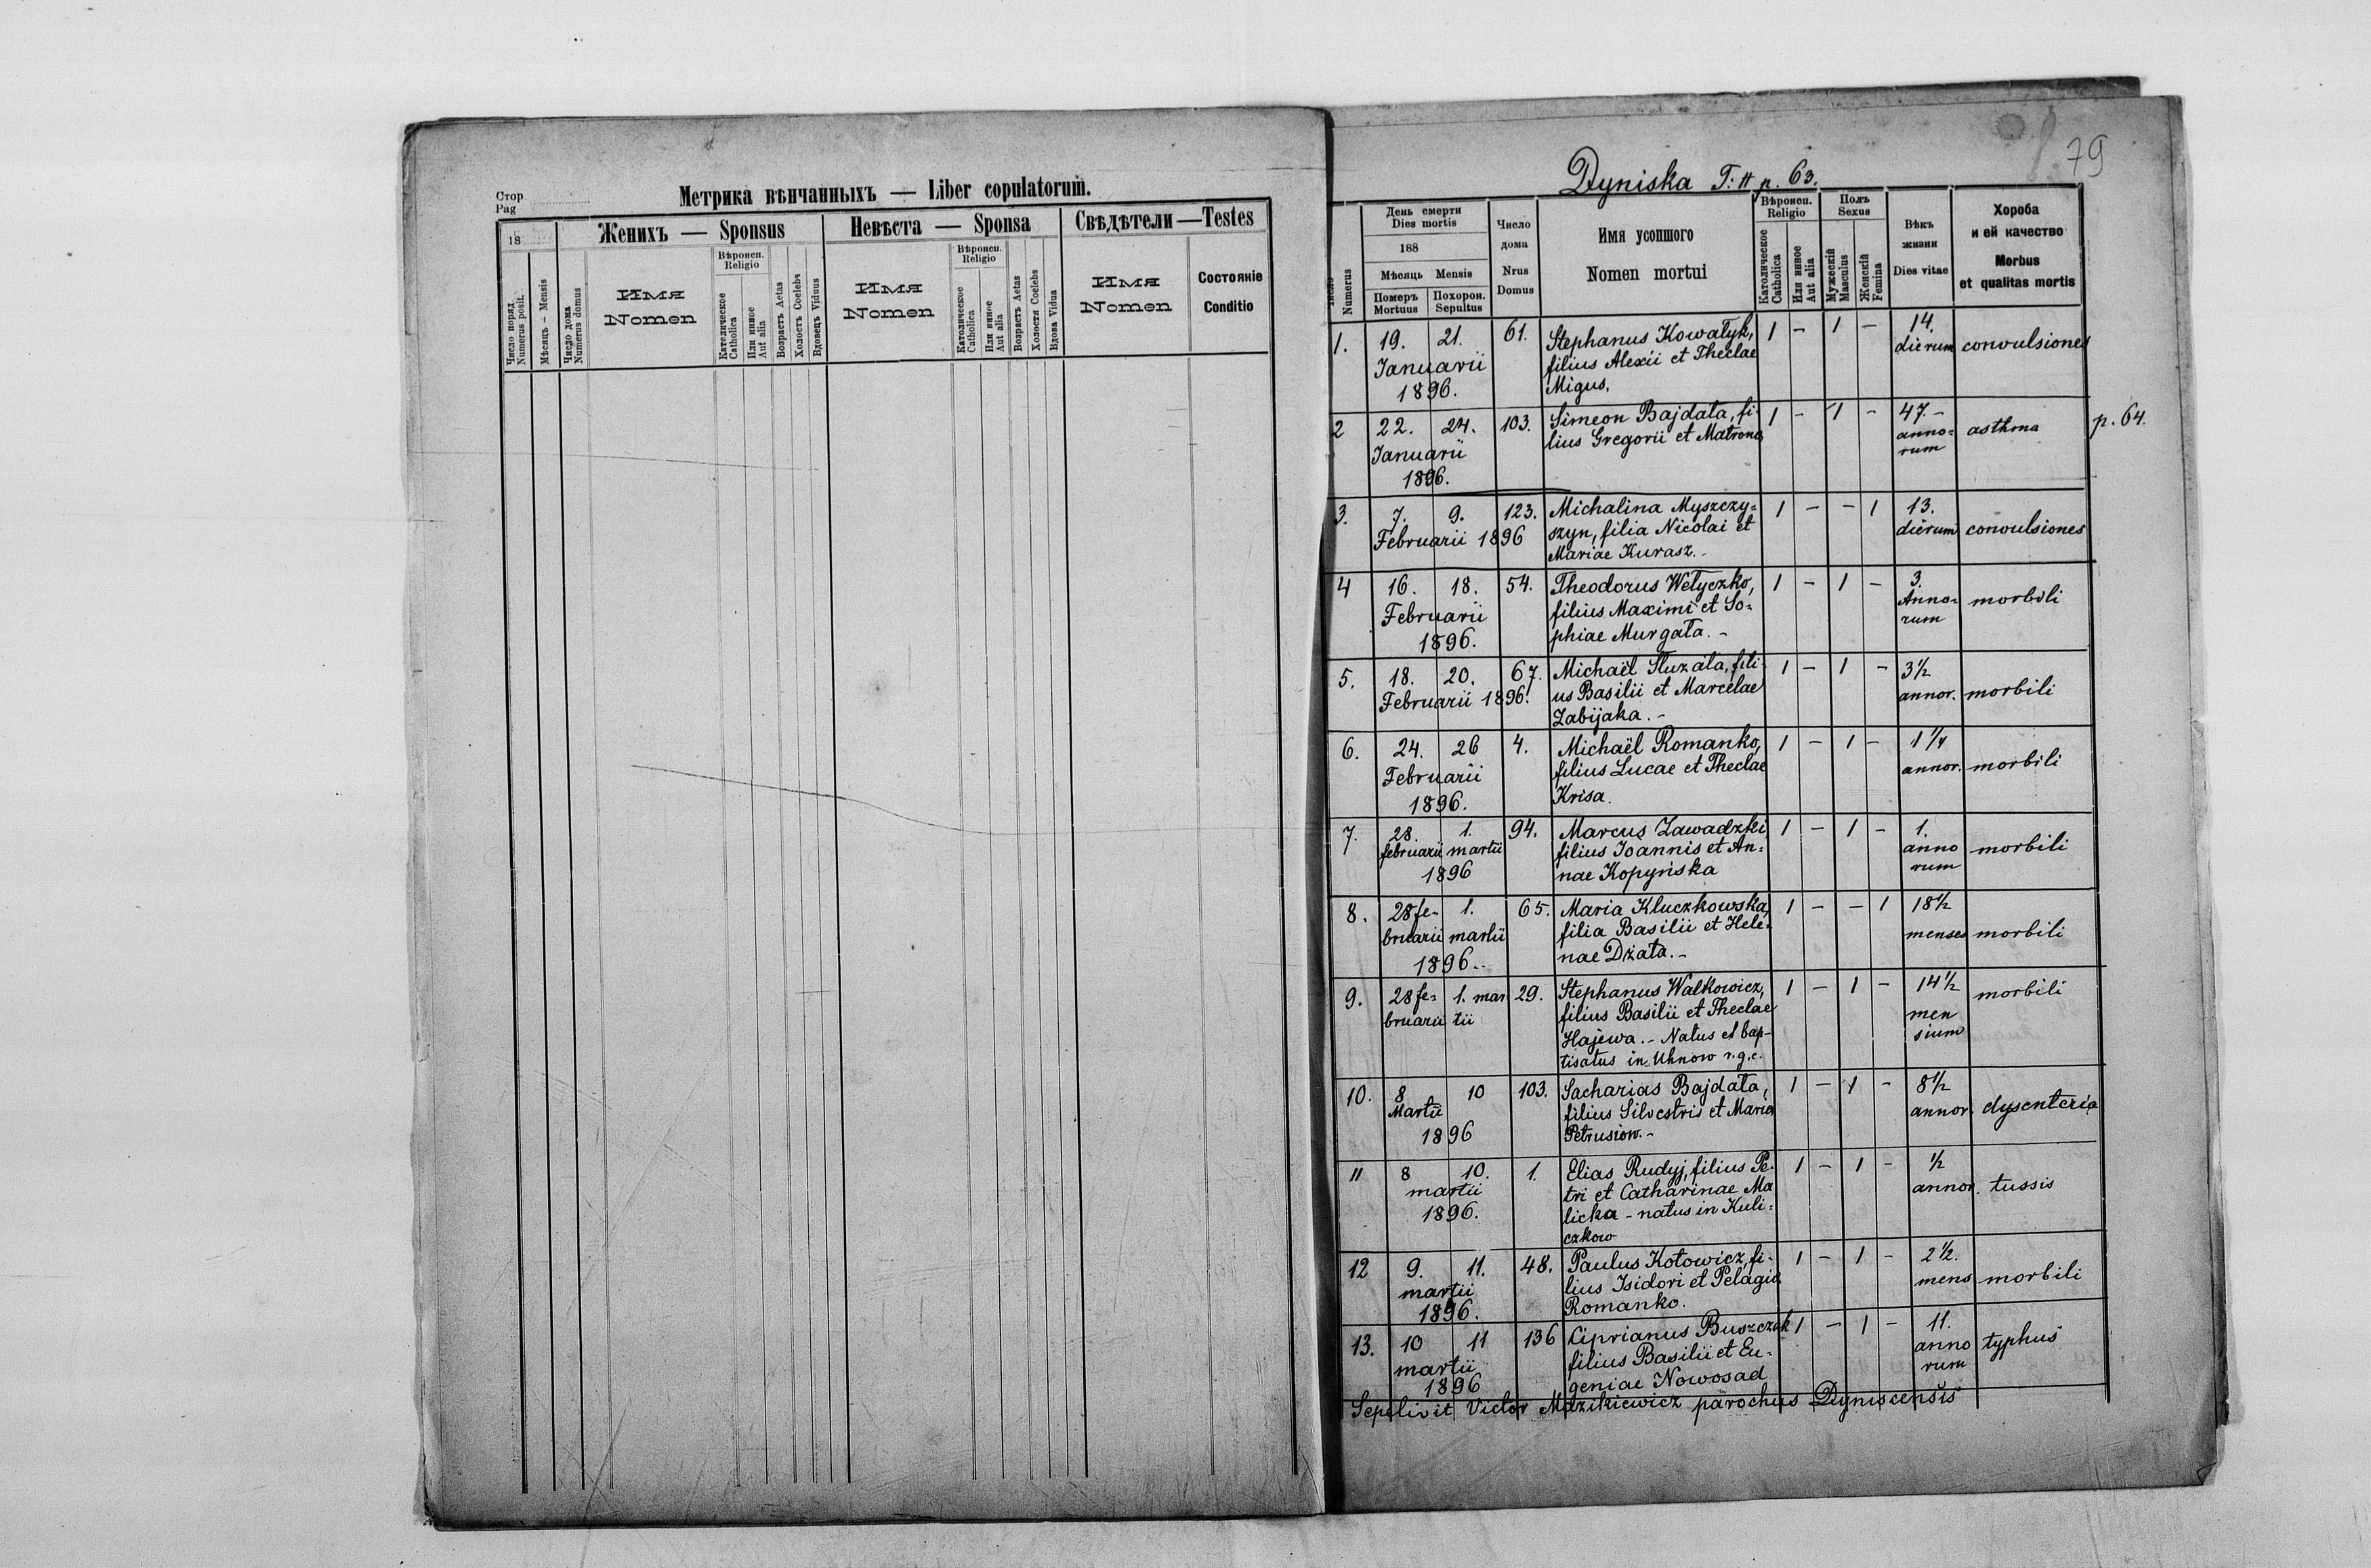 Стор
Pag
Метрика вѣнчанныхъ — Liber copulatorum.
18
Женихъ — Sponsus
Невѣста — Sponsa
Свѣдѣтели — Testes
Число поряд. Numerus posit.
Мѣсяць – Mensis
Число дома Numerus domus
Имя
Nomen
Вѣроисп.
Religio
Католическое Catholica
Или инное Aut alia
Возрастъ Aetas
Холостъ Coelebs
Вдовецъ Viduus
Имя
Nomen
Вѣроисп.
Religio
Католическое Catholica
Или инное Aut alia
Возрастъ Aetas
Холостя Coelebs
Вдова Vidua
Имя
Nomen
Состояніе
Conditio
79
Dyniska T: II p. 63.
Число Numerus
День смерти
Dies mortis
188
Мѣсяць Mensis
Померъ
Mortuus
Похорон.
Sepultus
Число
дома
Nrus
Domus
Имя усопшого
Nomen mortui
Вѣроисп.
Religio
Католическое Catholica
Или инное Aut alia
Полъ
Sexus
Мужескій Masculus
Женскій Femina
Вѣкъ
жизни
Dies vitae
Хороба
и ей качество
Morbus
et qualitas mortis
1. 19. 21. 61. Stephanus Kowałyk, 1 – 1 – 14.
Januarii filius Alexii et Theclae dierum convulsiones
1896. Migus.
2 22. 24. 103. Simeon Bajdała, fi- 1 – 1 – 47.-
Januarii lius Gregorii et Matronae anno= asthma p. 64.
1896. rum
3. 7. 9. 123. Michalina Myszczy= 1 – – 1 13.
Februarii 1896 szyn, filia Nicolai et dierum convulsiones
Mariae Kurasz.-
4 16. 18. 54. Theodorus Wełyczko, 1 – 1 – 3.
Februarii filius Maximi et So= Anno= morbili
1896. phiae Murgała.- rum
5. 18. 20. 67. Michaël Służała, fili- 1 – 1 – 3½
Februarii 1896. us Basilii et Marcelae annor. morbili
Zabijaka.-
6. 24. 26 4. Michaël Romanko, 1 – 1 – 1 ¼
Februarii filius Lucae et Theclae annor. morbili
1896. Krisa.
7. 28. 1. 94. Marcus Zawadzki 1 – 1 – 1.
februarii martii filius Joannis et An= anno morbili
1896 nae Kopyńska rum
8. 28 fe- 1. 65. Maria Kluczkowska, 1 – – 1 18½
bruarii martii filia Basilii et Hele= menses morbili
1896.. nae Dżała.-
9. 28 fe= 1. mar 29. Stephanus Walkowicz, 1 – 1 – 14½ morbili
bruarii tii filius Basilii et Theclae men
Hajewa.- Natus et bap- sium
tisatus in Uhnow r.g.c.
10. 8 10 103. Sacharias Bajdała, 1 – 1 – 8½
Martii filius Silvestris et Maria annor. dysenteria
1896 Petrusiow.-
11 8 10. 1. Elias Rudyj, filius Pe- 1 – 1 – ½
martii tri et Catharinae Ma annor. tussis
1896. licka - natus in Kuli=
czkow
12 9. 11. 48. Paulus Kotowicz, fi- 1 – 1 – 2½.
martii lius Isidori et Pelagia mens morbili
1896. Romanko.
13. 10 11 136 Ciprianus Buszczak 1 – 1 – 11.
martii filius Basilii et Eu- anno typhus
1896 geniae Nowosad rum
Sepelivit Victor Mazikiewicz parochus Dyniscensis